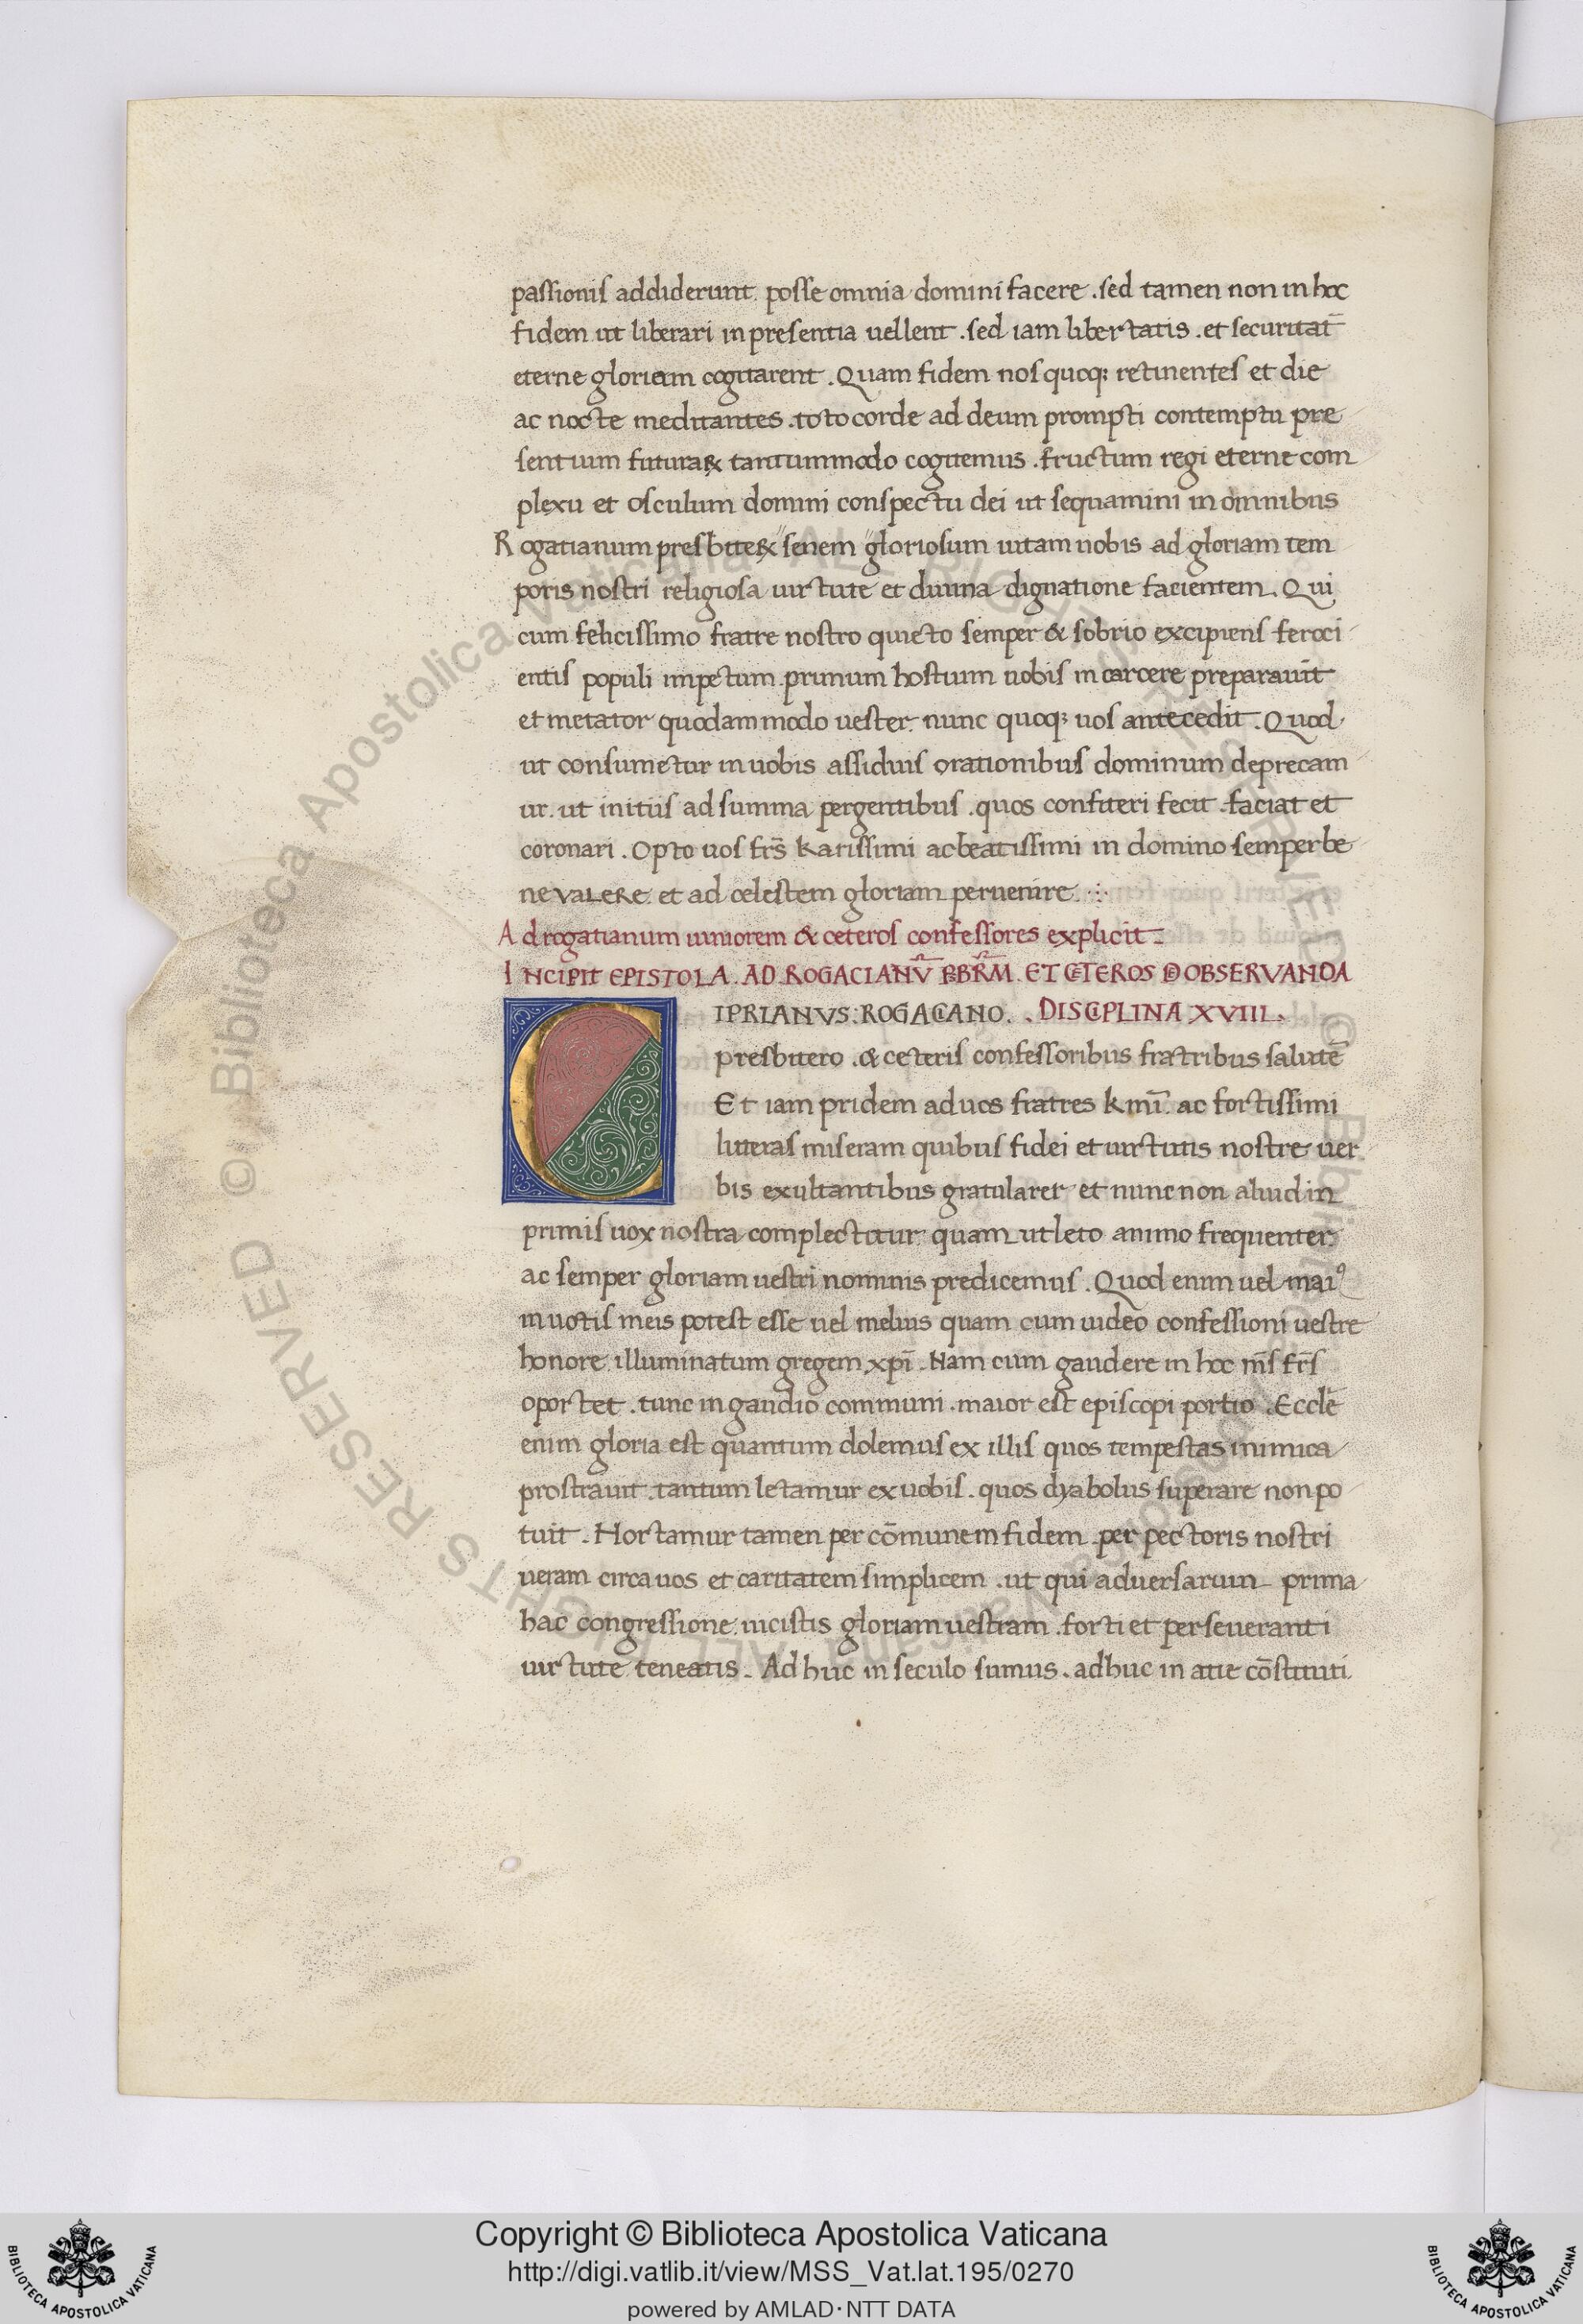 passionis addiderunt. posse omnia domini facere .sed tamen non in hoc
fidem ut liberari in presentia uellent .sed iam libertatis .et securitat̄
eterne gloriam cogitarent .Quam fidem nos quoq; retinentes et die
ac nocte meditantes .toto corde ad deum prompti contemptu pre
sentium futuraꝝ tantummodo cogitemus .fructum regi eterne com
plexu et osculum domini conspectu dei ut sequamini in omnibus
Rogatianum presbiteꝝ senem gloriosum uitam uobis ad gloriam tem
poris nostri religiosa uirtute et diuina dignatione facientem. Qui
cum felicissimo fratre nostro quieto semper & sobrio excipiens feroci
entis populi impetum. primum hostium uobis in carcere preparauit
et metator quodam modo uester. nunc quoq; uos antecedit .Quod
ut consumetur in uobis assiduis orationibus dominum deprecam
ur. ut initiis ad summa pergentibus .quos confiteri fecit .faciat et
coronari .Opto uos frs̄ karissimi ac beatissimi in domino semper be
ne VALERE et ad celestem gloriam peruenire .:.
Ad rogatianum iuniorem & ceteros confessores explicit.
INCIPIT EPISTOLA. AD ROGACIANV̄ PBR̄M. ET CETEROS DE OBSERVANDA
IPRIANVS: ROGACIANO. . DISCIPLINA XVIII.
presbitero .& ceteris confessoribus fratribus salutē
Et iam pridem ad uos fratres kmī. ac fortissimi
litteras miseram quibus fidei et uirtutis nostre uer
bis exultantibus gratularer et nunc non aliud in
primis uox nostra complectitur. quam ut leto animo frequenter
ac semper gloriam uestri nominis predicemus .Quod enim uel maiꝰ
in uotis meis potest esse uel melius quam cum uideo confessioni uestre
honore illuminatum gregem xpī .Nam cum gaudere in hoc om̄s fr̄s
oportet .tunc in gaudio communi .maior est episcopi portio .Eccle̅
enim gloria est quantum dolemus ex illis quos tempestas inimica
prostrauit .tantum letamur ex uobis .quos dyabolus superare non po
tuit .Hortamur tamen per cōmunem fidem .per pectoris nostri
ueram circa uos et caritatem simplicem .ut qui aduersarium prima
hac congressione uicistis gloriam uestram .forti et perseueranti
uirtute teneatis. Ad huc in seculo sumus .adhuc in atie cōstituti
Copyright © Biblioteca Apostolica Vaticana
http://digi.vatlib.it/view/MSS_Vat.lat.195/0270
powered by AMLAD·NTT DATA
BIBLIOTECA APOSTOLICA VATICANA
BIBLIOTECA APOSTOLICA VATICANA
© Biblioteca Apostolica Vaticana ALL RIGHTS RESERVED
© Biblioteca Apostolica Vaticana ALL RIGHTS RESERVED